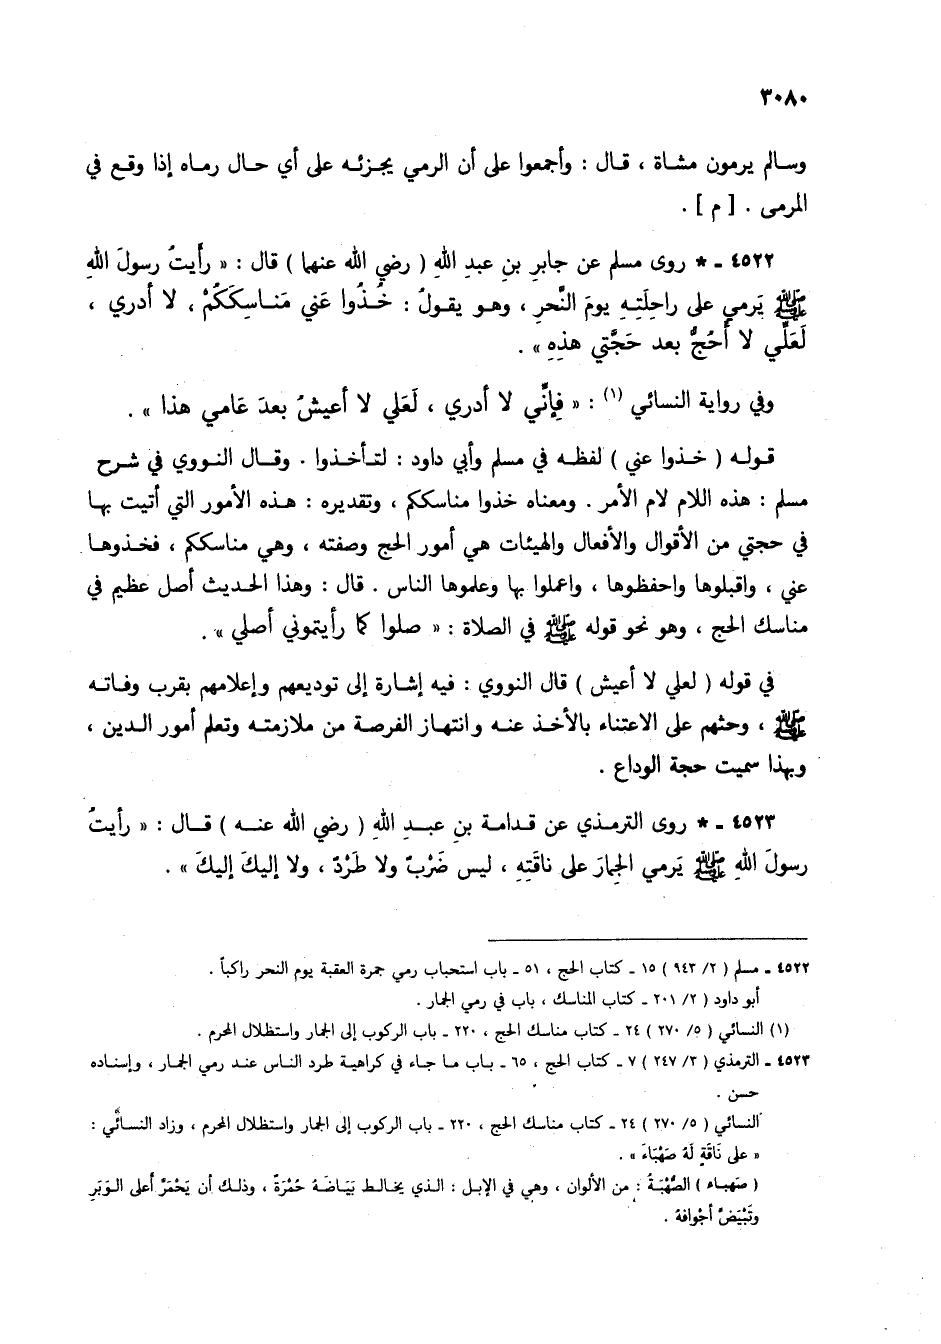 ٣٠٨٠
وسالم يرمون مشاة ، قال : وأجمعوا على أن الرمي يجزئه على أي حال رماه إذا وقع في
المرمى . [ م ] .
٤٥٢٢ ـ * روى مسلم عن جابرِ بنِ عبدِ اللهِ ( رضي الله عنهما ) قال : « رأيتُ رسولَ اللهِ
ﷺ يَرمي على راحِلَتِهِ يومَ النَّحرِ ، وهو يقولُ : خُذُوا عَني مَناسِكَكُمْ ، لا أدري ،
لَعَلَّي لا أَحُجُّ بعد حَجَّتي هذهِ » .
وفي رواية النسائي (١) : « فإنَّي لا أدري ، لَعَلي لا أعيشُ بعدَ عَامي هذا » .
قوله ( خذوا عني ) لفظه في مسلم وأبي داود : لتأخذوا . وقال النووي في شرح
مسلم : هذه اللام لام الأمر . ومعناه خذوا مناسككم ، وتقديره : هذه الأمور التي أتيت بها
في حجتي من الأقوال والأفعال والهيئات هي أمور الحج وصفته ، وهي مناسككم ، فخذوها
عني ، واقبلوها واحفظوها ، واعملوا بها وعلموها الناس . قال : وهذا الحديث أصل عظيم في
مناسك الحج ، وهو نحو قوله ﷺ في الصلاة : « صلوا كما رأيتموني أصلي » .
في قوله ( لعلي لا أعيش ) قال النووي : فيه إشارة إلى توديعهم وإعلامهم بقرب وفاته
ﷺ ، وحثهم على الاعتناء بالأخذ عنه وانتهاز الفرصة من ملازمته وتعلم أمور الدين ،
وبهذا سميت حجة الوداع .
٤٥٢٣ ـ * روى الترمذي عن قدامة بنِ عبدِ اللهِ ( رضي الله عنه ) قال : « رأيتُ
رسولَ اللهِ ﷺ يَرمي الجمارَ على ناقَتِهِ ، ليس ضَرْبٌ ولا طَرْدٌ ، ولا إليكَ إليكَ » .
٤٥٢٢ ـ مسلم ( ٢/ ٩٤٣ ) ١٥ ـ كتاب الحج ، ٥١ ـ باب استحباب رمي جمرة العقبة يوم النحر راكباً .
أبو داود ( ٢/ ٢٠١ ـ كتاب المناسك ، باب في رمي الجمار .
(١) النسائي ( ٥/ ٢٧٠ ) ٢٤ ـ كتاب مناسك الحج ، ٢٢٠ ـ باب الركوب إلى الجمار واستظلال المحرم .
٤٥٢٣ ـ الترمذي ( ٣/ ٢٤٧ ) ٧ ـ كتاب الحج ، ٦٥ ـ باب ما جاء في كراهية طرد الناس عند رمي الجمار ، وإسناده
حسن .
النسائي ( ٥/ ٢٧٠ ) ٢٤ ـ كتاب مناسك الحج ، ٢٢٠ ـ باب الركوب إلى الجمار واستظلال المحرم ، وزاد النسائي :
« على نَاقَةٍ لَهُ صَهْبَاءَ » .
( صهباء ) الصُّهْبَةُ : من الألوان ، وهي في الإبل : الذي يخالط بَيَاضَهُ حُمْرَةٌ ، وذلك أن يَحْمَرَّ أعلى الوَبَرِ
وتَبْيَضَّ أجْوافهُ .